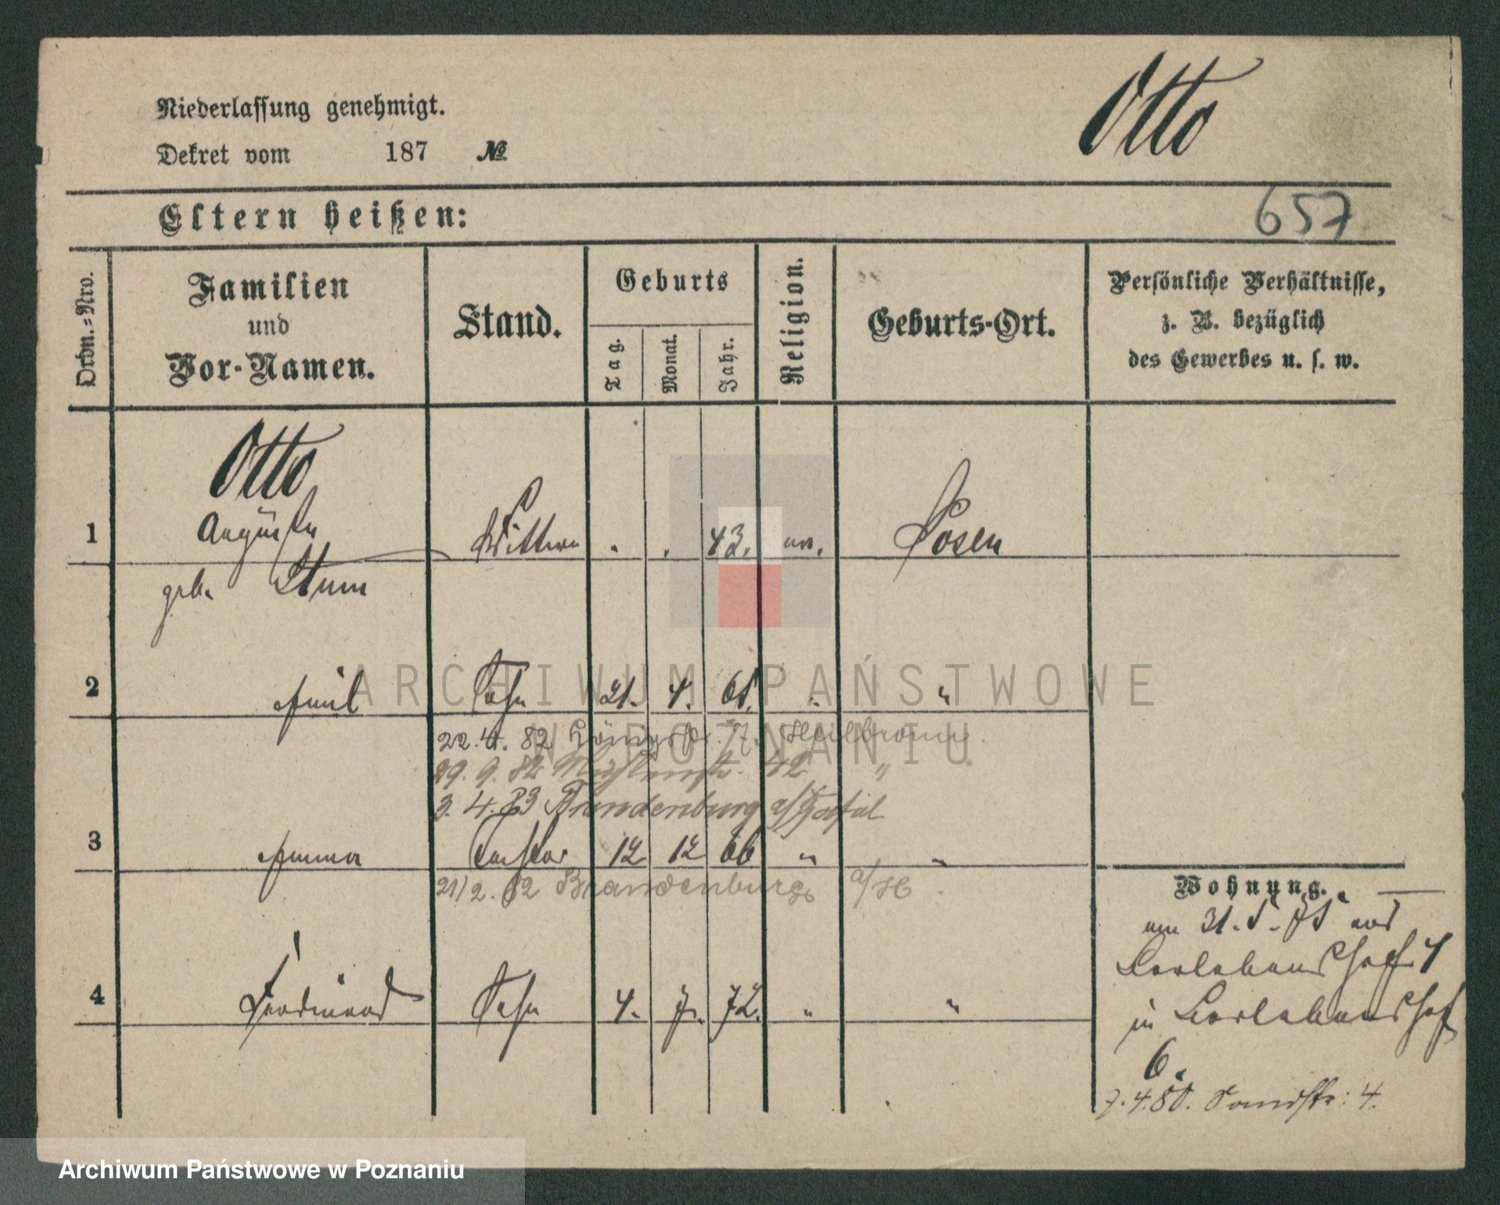 Otto
Niederlassung genehmigt.
Dekret vom 187 №
Eltern heißen:
657
Ordn.-Nro.
Familien
und
Vor-Namen.
Stand.
Geburts
Tag.
Monat.
Jahr.
Religion.
Geburts-Ort.
Persönliche Verhältnisse,
z. B. bezüglich
des Gewerbes u. s. w.
Otto
1 Auguste Wittwe . . 43. ev. Posen
geb. Sturm
2 Emil Sohn 21. 4. 61. " "
22.4.82 Königsstr. 7. Heilbronn
29.9.82 42 "
3.4.83 Brandenburg a/Havel
3 Emma Tochter 12 12 66 " "
21/2.82 Brandenburg a/H.
Wohnung.
am 31.5.75 aus
4
4 Ferdinand Sohn 4. 7. 72. " "
in
6.
7.4.80. Sandstr: 4.
ARCHIWUM PAŃSTWOWE
W POZNANIU
Archiwum Państwowe w Poznaniu